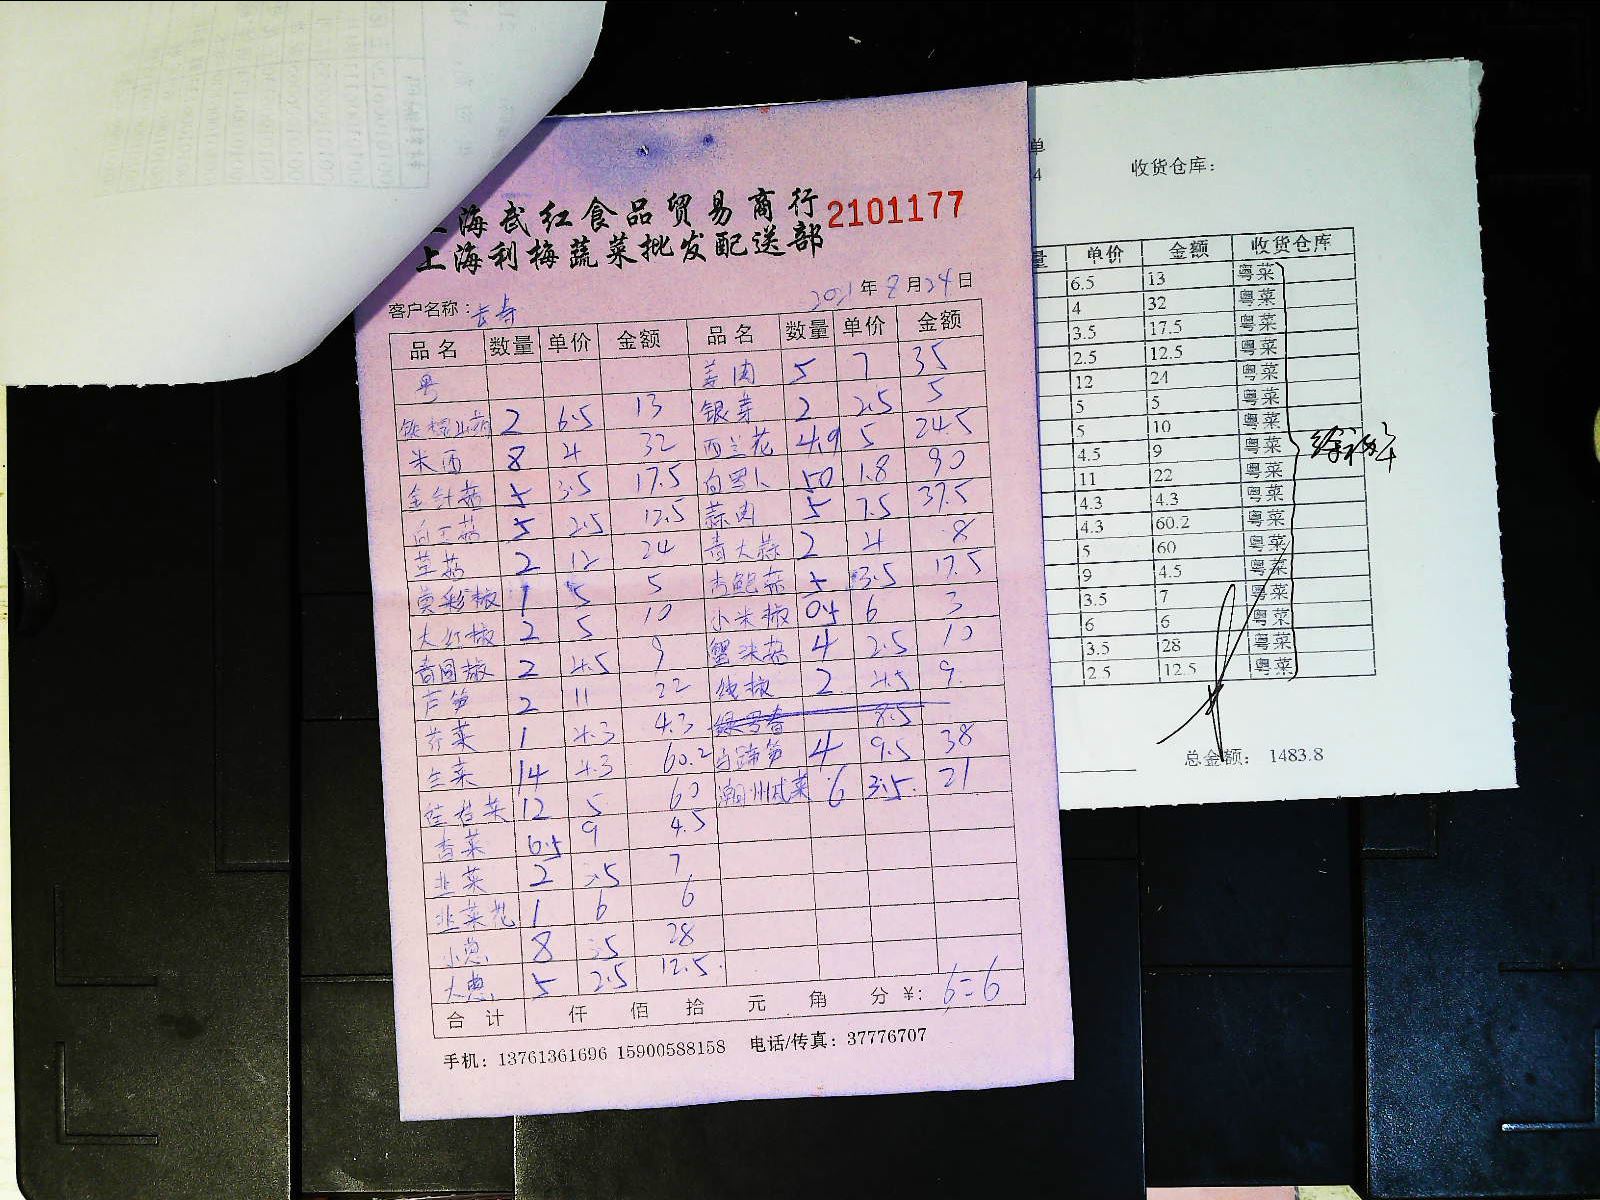 上海武红食品贸易商行 2101177
上海利梅蔬菜批发配送部
客户名称：长寿 2021年8月24日
品名 数量 单价 金额 品名 数量 单价 金额
粤 姜肉 5 7 35
铁棍山药 2 6.5 13 银芽 2 2.5 5
米西 8 4 32 西兰花 4.9 5 24.5
金针菇 5 3.5 17.5 白罗卜 50 1.8 90
白玉菇 5 2.5 12.5 蒜肉 5 7.5 37.5
草菇 2 12 24 青大蒜 2 4 8
美彩椒 1 5 5 杏鲍菇 5 3.5 17.5
大红椒 2 5 10 小米椒 0.5 6 3
青圆椒 2 4.5 9 蟹味菇 4 2.5 10
芦笋 2 11 22 线椒 2 4.5 9
芥菜 1 4.3 4.3 8.5
生菜 14 4.3 60.2 4 9.5 38
12 5 60 潮州咸菜 6 3.5 21
香菜 0.5 9 4.5
韭菜 2 3.5 7
韭菜花 1 6 6
小葱 8 3.5 28
大葱 5 2.5 12.5
合计 仟 佰 拾 元 角 分 ￥: 626
手机：13761361696 15900588158 电话/传真：37776707
单
4
收货仓库：
量 单价 金额 收货仓库
6.5 13 粤菜
4 32 粤菜
3.5 17.5 粤菜
2.5 12.5 粤菜
12 24 粤菜
5 5 粤菜
5 10 粤菜
4.5 9 粤菜
11 22 粤菜
4.3 4.3 粤菜
4.3 60.2 粤菜
5 60 粤菜
9 4.5 粤菜
3.5 7 粤菜
6 6 粤菜
3.5 28 粤菜
2.5 12.5 粤菜
总金额： 1483.8